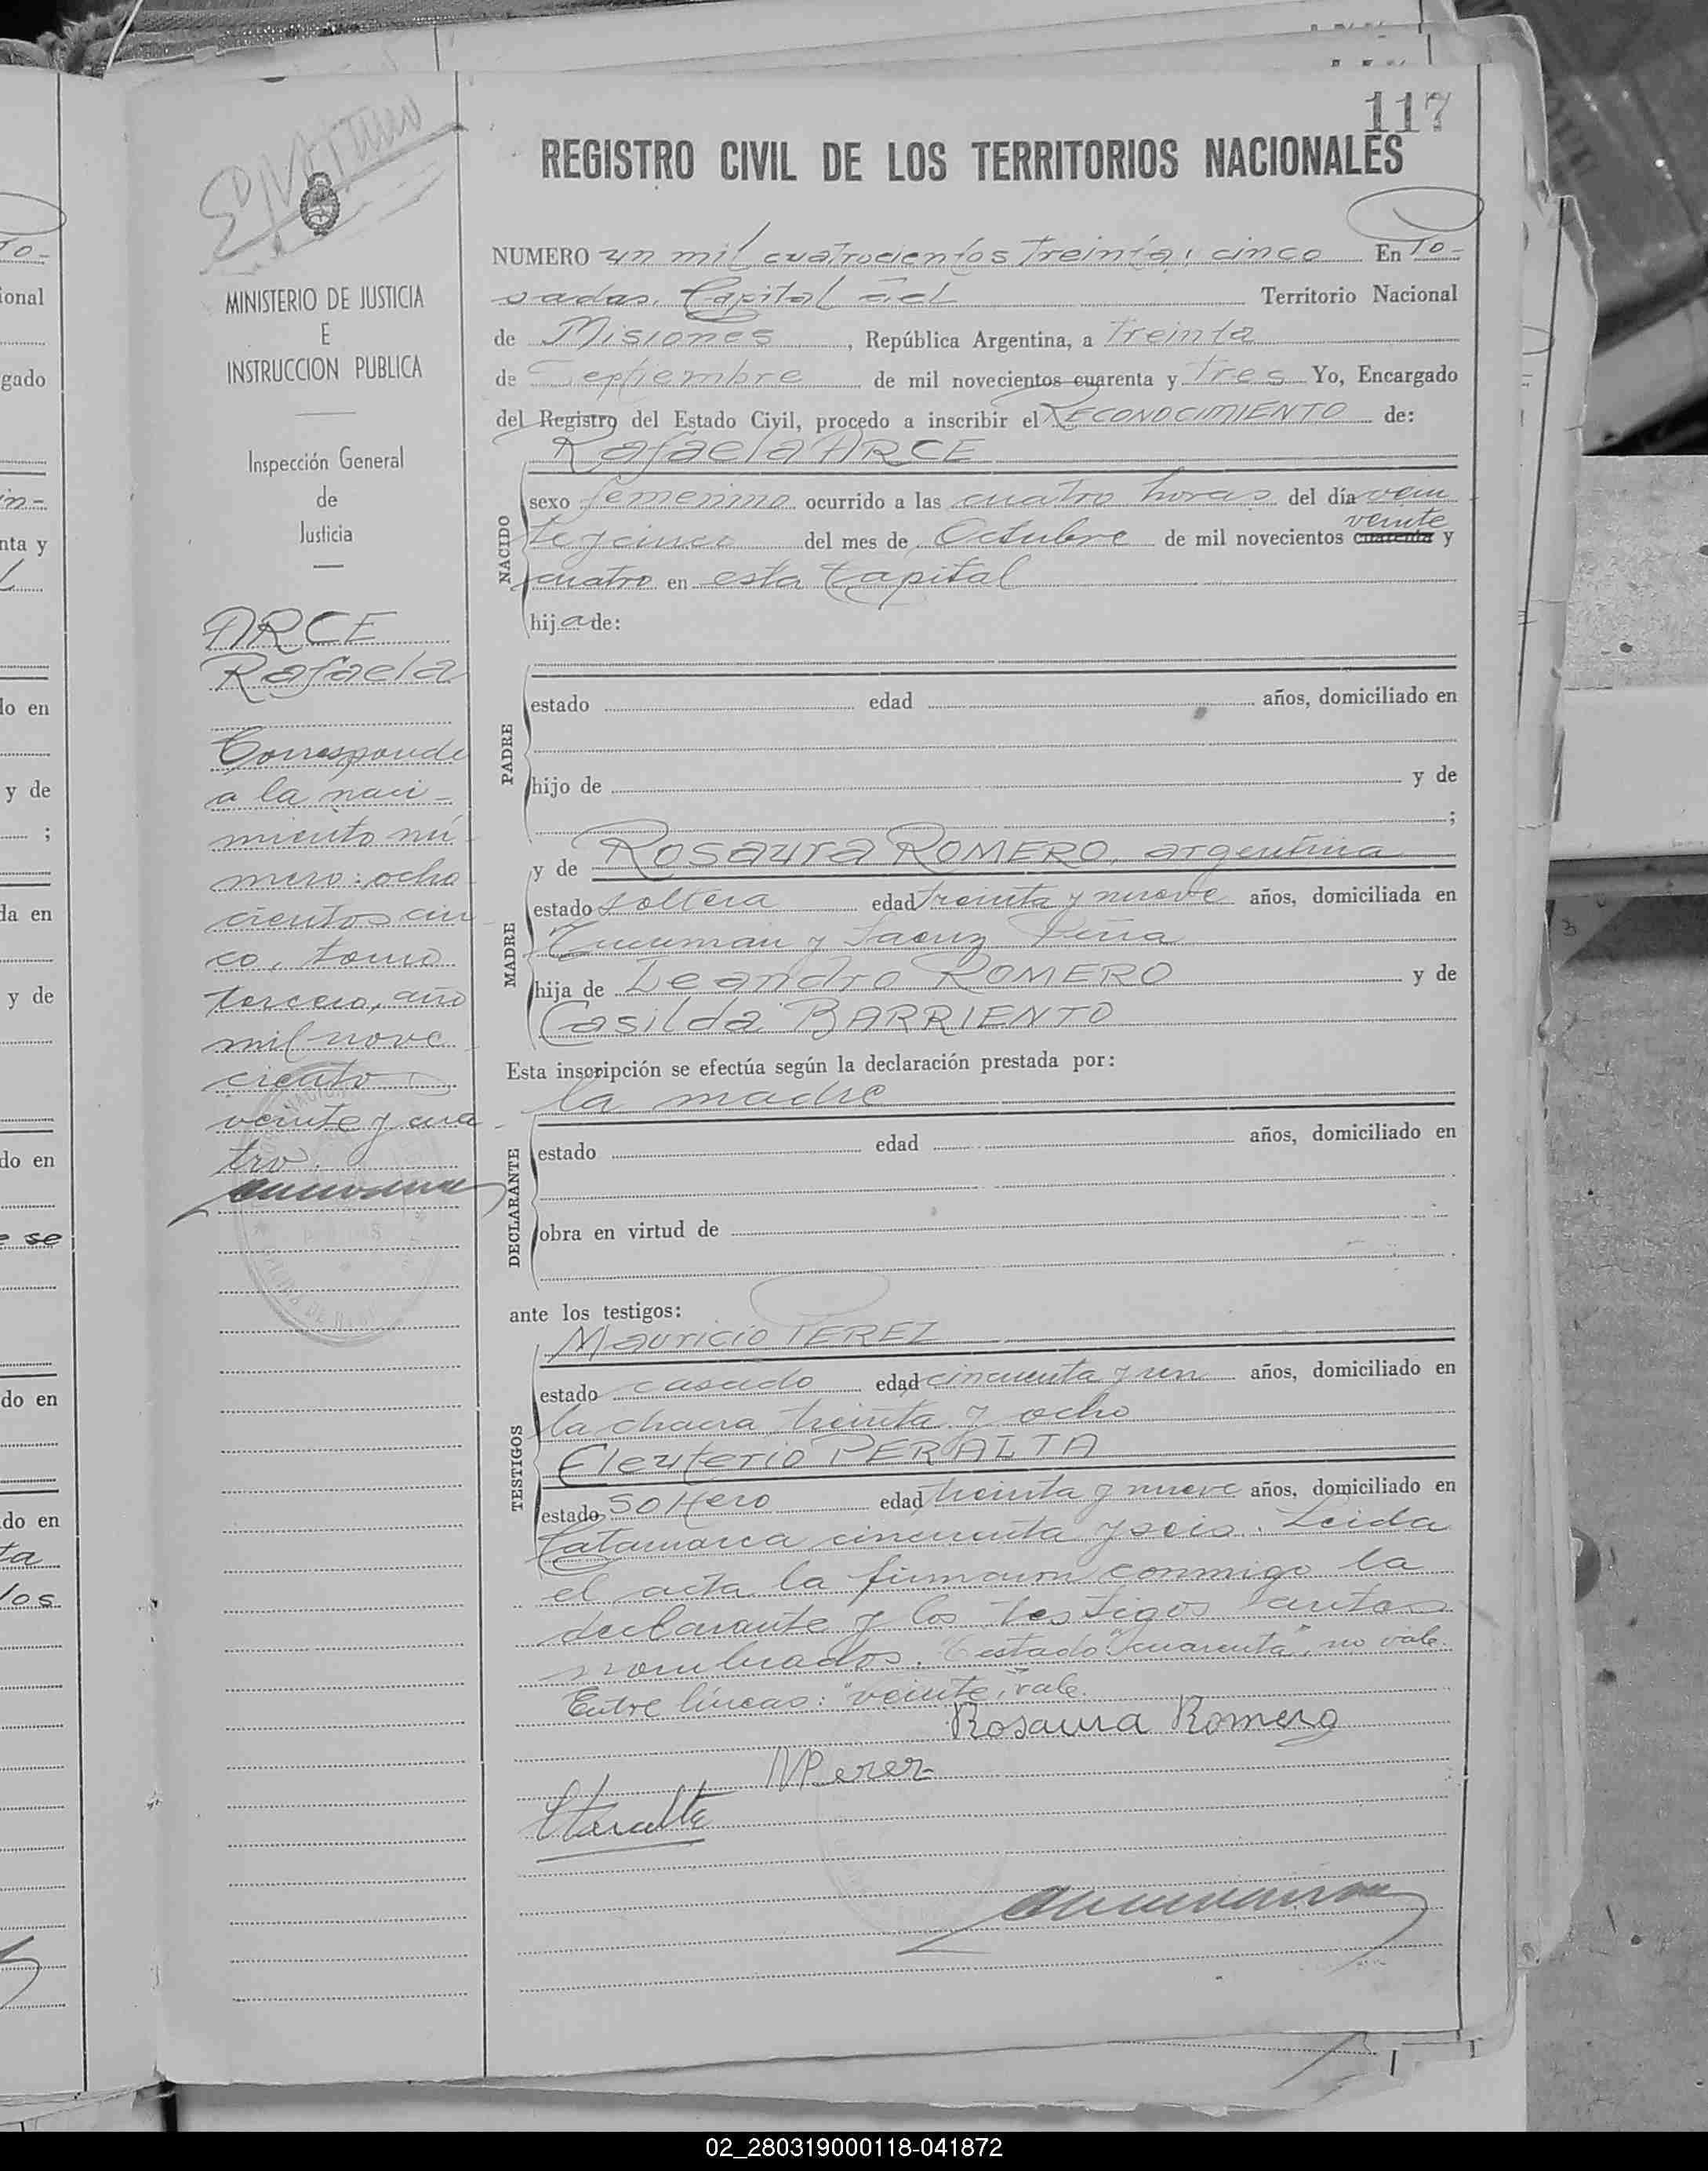 117
REGISTRO CIVIL DE LOS TERRITORIOS NACIONALES
NUMERO un mil cuatrocientos treinta i cinco En Po-
sadas, Capital del Territorio Nacional
de Misiones, República Argentina, a treinta
de Septiembre de mil novecientos cuarenta y tres Yo, Encargado
del Registro del Estado Civil, procedo a inscribir el RECONOCIMIENTO de:
Rafaela ARCE
NACIDO
sexo femenino ocurrido a las cuatro horas del día vein
veinte
te y cinco del mes de Octubre de mil novecientos cuarenta y
cuatro en esta Capital
hija de:
PADRE
estado edad años, domiciliado en
hijo de y de
;
y de Rosaura ROMERO, argentina
MADRE
estado soltera edad treinta y nueve años, domiciliada en
Tucuman y Saenz Peña
hija de Leandro ROMERO y de
Casilda BARRIENTO
Esta inscripción se efectúa según la declaración prestada por:
la madre
DECLARANTE
estado edad años, domiciliado en
obra en virtud de
ante los testigos:
TESTIGOS
Mauricio PEREZ
estado casado edad cincuenta y un años, domiciliado en
la chacra treinta y ocho
Eleuterio PERALTA
estado soltero edad treinta y nueve años, domiciliado en
Catamarca cincuenta y seis. Leida
el acta la firmaron conmigo la
declarante y los testigos antes
nombrados. Testado "cuarenta", no vale.
Entre líneas: "veinte", vale.
Rosaura Romero
MPerez
MINISTERIO DE JUSTICIA
E
INSTRUCCION PUBLICA
Inspección General
de
Justicia
ARCE
Rafaela
Corresponde
a la naci-
miento nú-
mero: ocho
cientos cin
co, tomo
tercero, año
mil nove
ciento
veinte y cua
tro.
ional
gado
in-
nta y
do en
y de
;
da en
y de
do en
e se
do en
do en
ta
los
02_280319000118-041872